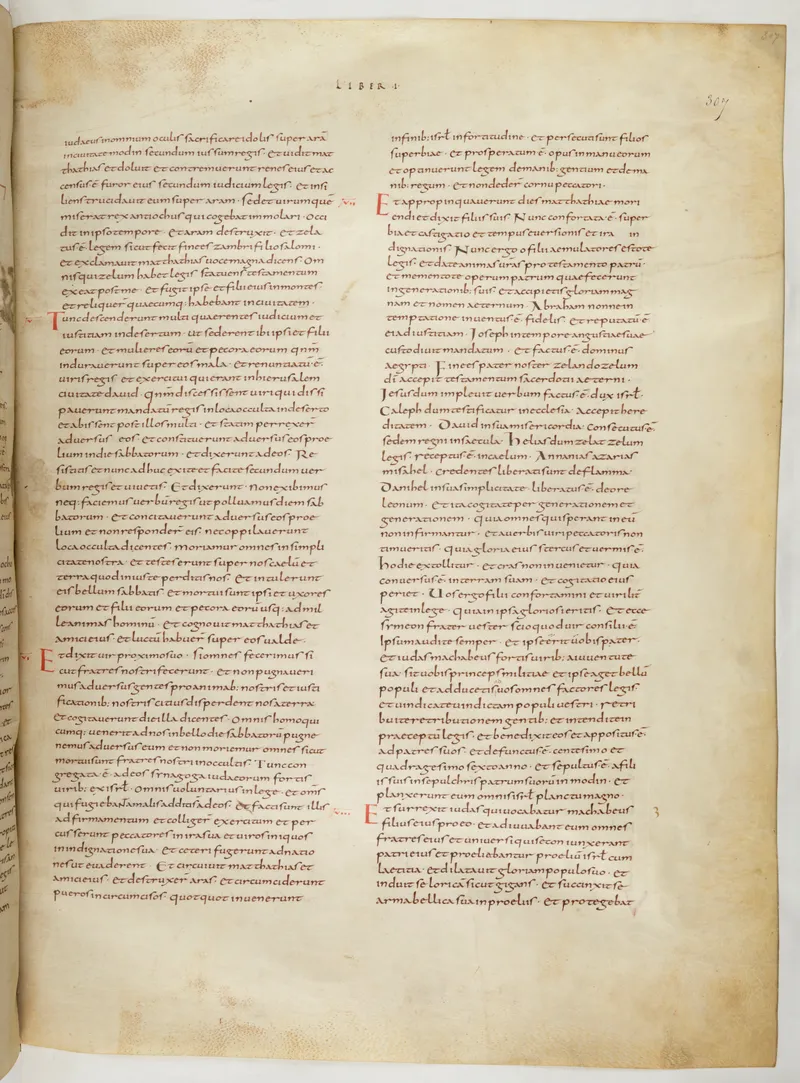 LIBER I
307
iudaeus in omnium oculis sacrificare idolis super arā
in ciuitate modin secundum iussum regis · et uidit mat
thathias et doluit et contremuerunt renes eius et ac
census ē furor eius secundum iudicium legis · et insi
liens trucidauit eum super aram · sed et uirum quē
miserat rex antiochus qui cogebat immolari · occi
dit in ipso tempore · et aram destruxit · et zela
tus ē legem sicut fecit finees zambri filio salomi ·
et exclamauit matthathias uoce magna dicens om
nis qui zelum habet legis statuens testamentum
exeat post me · et fugit ipse et filii eius in montes
et reliquer quaecumq; habebant in ciuitatem ·
Tunc descenderunt multi quaerentes iudicium et
iustitiam in desertum · ut sederent ibi ipsi et filii
eorum · et mulieres eorū et pecora eorum qnm
indurauerunt super eos mala · et renuntiatū ē ·
uiris regis et exercitui qui erant in hierusalem
ciuitate dauid · qnm discessissent uiri qui dissi
pauerunt mandatū regis in loca occulta in deserto
et abissent post illos multi · et statim perrexer
aduersus eos et constituerunt aduersus eos proe
lium in die sabbatorum · et dixerunt ad eos · Re
sistitis et nunc adhuc exite et facite secundum uer
bum regis et uiuetis · Et dixerunt · non exibimus
neq; faciemus uerbū regis ut polluamus diem sab
batorum · et concitauerunt aduersus eos proe
lium et non responder eis nec oppilauerunt
loca occulta dicentes · moriamur omnes in simpli
citate nostra · et testes erunt super nos caelū et
terra quod iniuste perditis nos · et intulerunt
eis bellum sabbatis · et mortui sunt ipsi et uxores
eorum et filii eorum et pecora eorū usq; ad mil
le animas hominū · et cognouit matthathias et
amici eius · et luctū habuer super eos ualde ·
Et dixit uir proximo suo · si omnes fecerimus si
cut fratres nostri fecerunt · et non pugnaueri
mus aduersus gentes pro animab; nostris et iusti
ficationib; nostris citius disperdent nos a terra ·
et cogitauerunt die illa dicentes · Omnis homo qui
cumq; uenerit ad nos in bello die sabbatorū pugne
mus aduersus eum et non moriemur omnes sicut
mortui sunt fratres nostri in occultis · Tunc con
gregata ē · ad eos synagoga iudaeorum fortis
uirib; ex isrt · Omnis uoluntarius in lege · et om̄s
qui fugiebant a malis additi ad eos · et facti sunt illis
ad firmamentum et colliger exercitum et per
cusserunt peccatores in ira sua et uiros iniquos
in indignatione sua · et ceteri fugerunt ad natio
nes ut euaderent · Et circuiuit matthathias et
amici eius · et destruxer aras · et circumciderunt
pueros incircumcisos · quotquot inuenerunt
in finib; isrt in fortitudine · et persecuti sunt filios
superbiae · et prosperatum ē · opus in manu eorum
et optinuerunt legem de manib; gentium et de ma
nib; regum · et non dederẽ cornu peccatori ·
Et appropinquauerunt dies matthathiae mori
endi et dixit filiis suis · Nunc confortata ē · super
bia et castigatio et tempus euersionis et ira in
dignationis · Nunc ergo o filii aemulatores estote
legis · et date animas urās pro testamento patrū ·
et mementote operum patrum quae fecerunt
in generationib; suis · et accipietis gloriam mag
nam et nomen aeternum · Abraham nonne in
temptatione inuentus ē · fidelis · et reputatū ē
ei ad iustitiam · Ioseph in tempore angustiae suae
custodiuit mandatum · et factus ē · dominus
aegypti · Finees pater noster zelando zelum
di accepit testamentum sacerdotii aeterni ·
Iesus dum impleuit uerbum factus ē · dux isrt ·
Caleph dum testificatur in ecclesia · accepit here
ditatem · Dauid in sua misericordia · consecutus ē ·
sedem regni in saecula · helias dum zelat zelum
legis · receptus ē · in caelum · Annanias azarias
misahel · credentes liberati sunt de flamma ·
Danihel in sua simplicitate liberatus ē · de ore
leonum · et ita cogitate per generationem et
generationem · quia omnes qui sperant in eū
non infirmantur · et a uerbis uiri peccatoris non
timueritis quia gloria eius stercus et uermis ē ·
hodie extollitur · et cras non inuenietur · quia
conuersus ē · in terram suam · et cogitatio eius
periet · Uos ergo filii confortamini et uirilit
agite in lege · quia in ipsa gloriosi eritis · et ecce
symeon frater uester scio quod uir consilii ē ·
Ipsum audite semper · et ipse erit uobis pater ·
et iudas machabeus fortis uirib; a iuuentute
sua sit uobis princeps militiae · et ipse aget bellū
populi et adducetis uos omnes factores legis
et uindicate uindictam populi uestri · retri
buite retributionem gentib; et intendite in
praeceptū legis · et benedixit eos et appositus ē ·
ad patres suos · et defunctus ē · centesimo et
quadragesimo sexto anno · et sepultus ē · a fili
is suis in sepulchris patrum suorū in modin · et
planxerunt eum omnis isrt planctu magno ·
Et surrexit iudas qui uocabatur machabeus
filius eius pro eo · et adiuuabant eum omnes
fratres eius et uniuersi qui se coniunxerant
patri eius et proeliebantur proeliū isrt cum
laetitia · et dilatauit gloriam populo suo · et
induit se loricā sicut gigans · et succinxit se
arma bellica sua in proeliis · et protegebat